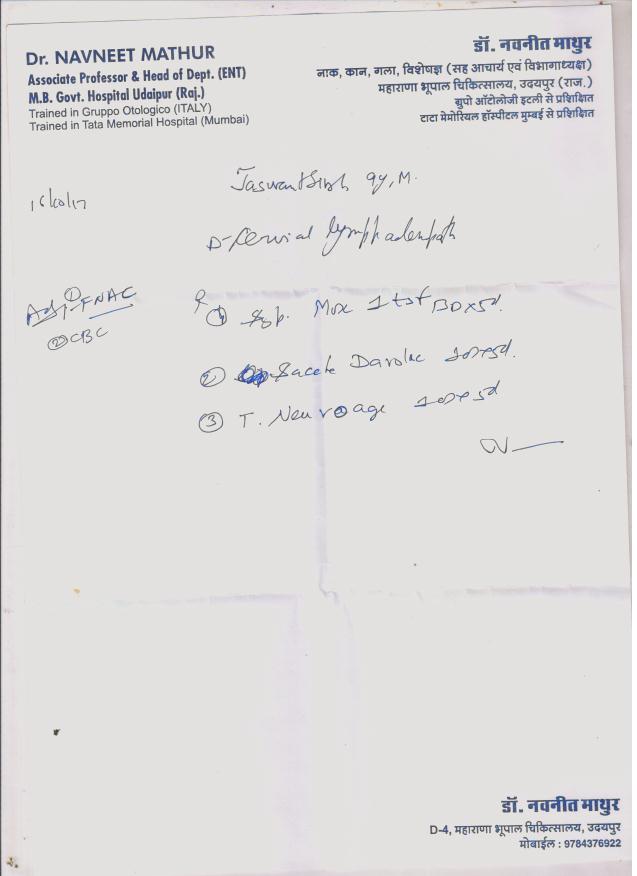 Dr. NAVNEET MATHUR
Associate Professor & Head of Dept. (ENT)
M.B. Govt. Hospital Udaipur (Raj.)
Trained in Gruppo Otologico (ITALY)
Trained in Tata Memorial Hospital (Mumbai)
डॉ. नवनीत माथुर
नाक, कान, गला, विशेषज्ञ (सह आचार्य एवं विभागाध्यक्ष)
महाराणा भूपाल चिकित्सालय, उदयपुर (राज.)
ग्रुपो ऑटोलोजी इटली से प्रशिक्षित
टाटा मेमोरियल हॉस्पीटल मुम्बई से प्रशिक्षित
Jaswant Singh 9y, M.
16/10/17
D- Cervial lymphadenpath
Adj- ① FNAC
② CBC
① Mox 1 tsf BDx5d.
② Sacete 
③ T. 
डॉ. नवनीत माथुर
D-4, महाराणा भूपाल चिकित्सालय, उदयपुर
मोबाईल : 9784376922